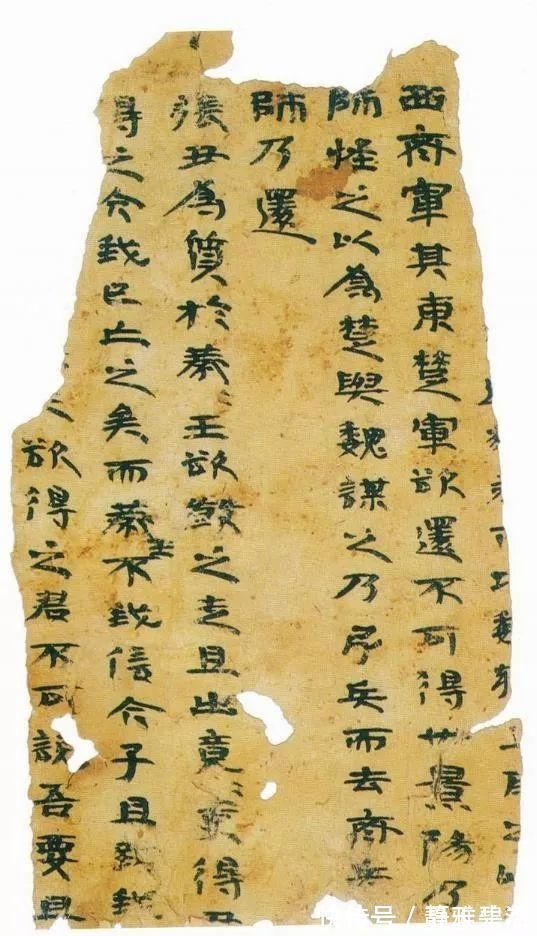 西齊軍其東楚軍欲還不可得也景陽乃
師怪之以為楚與魏謀之乃引兵而去齊兵
師乃還
張丑為質於燕〻王欲殺之走且出竟〻吏得丑
得之今我已亡之矣而燕王不我信今子且致我
欲得之君不可說吾要且
号/静雅